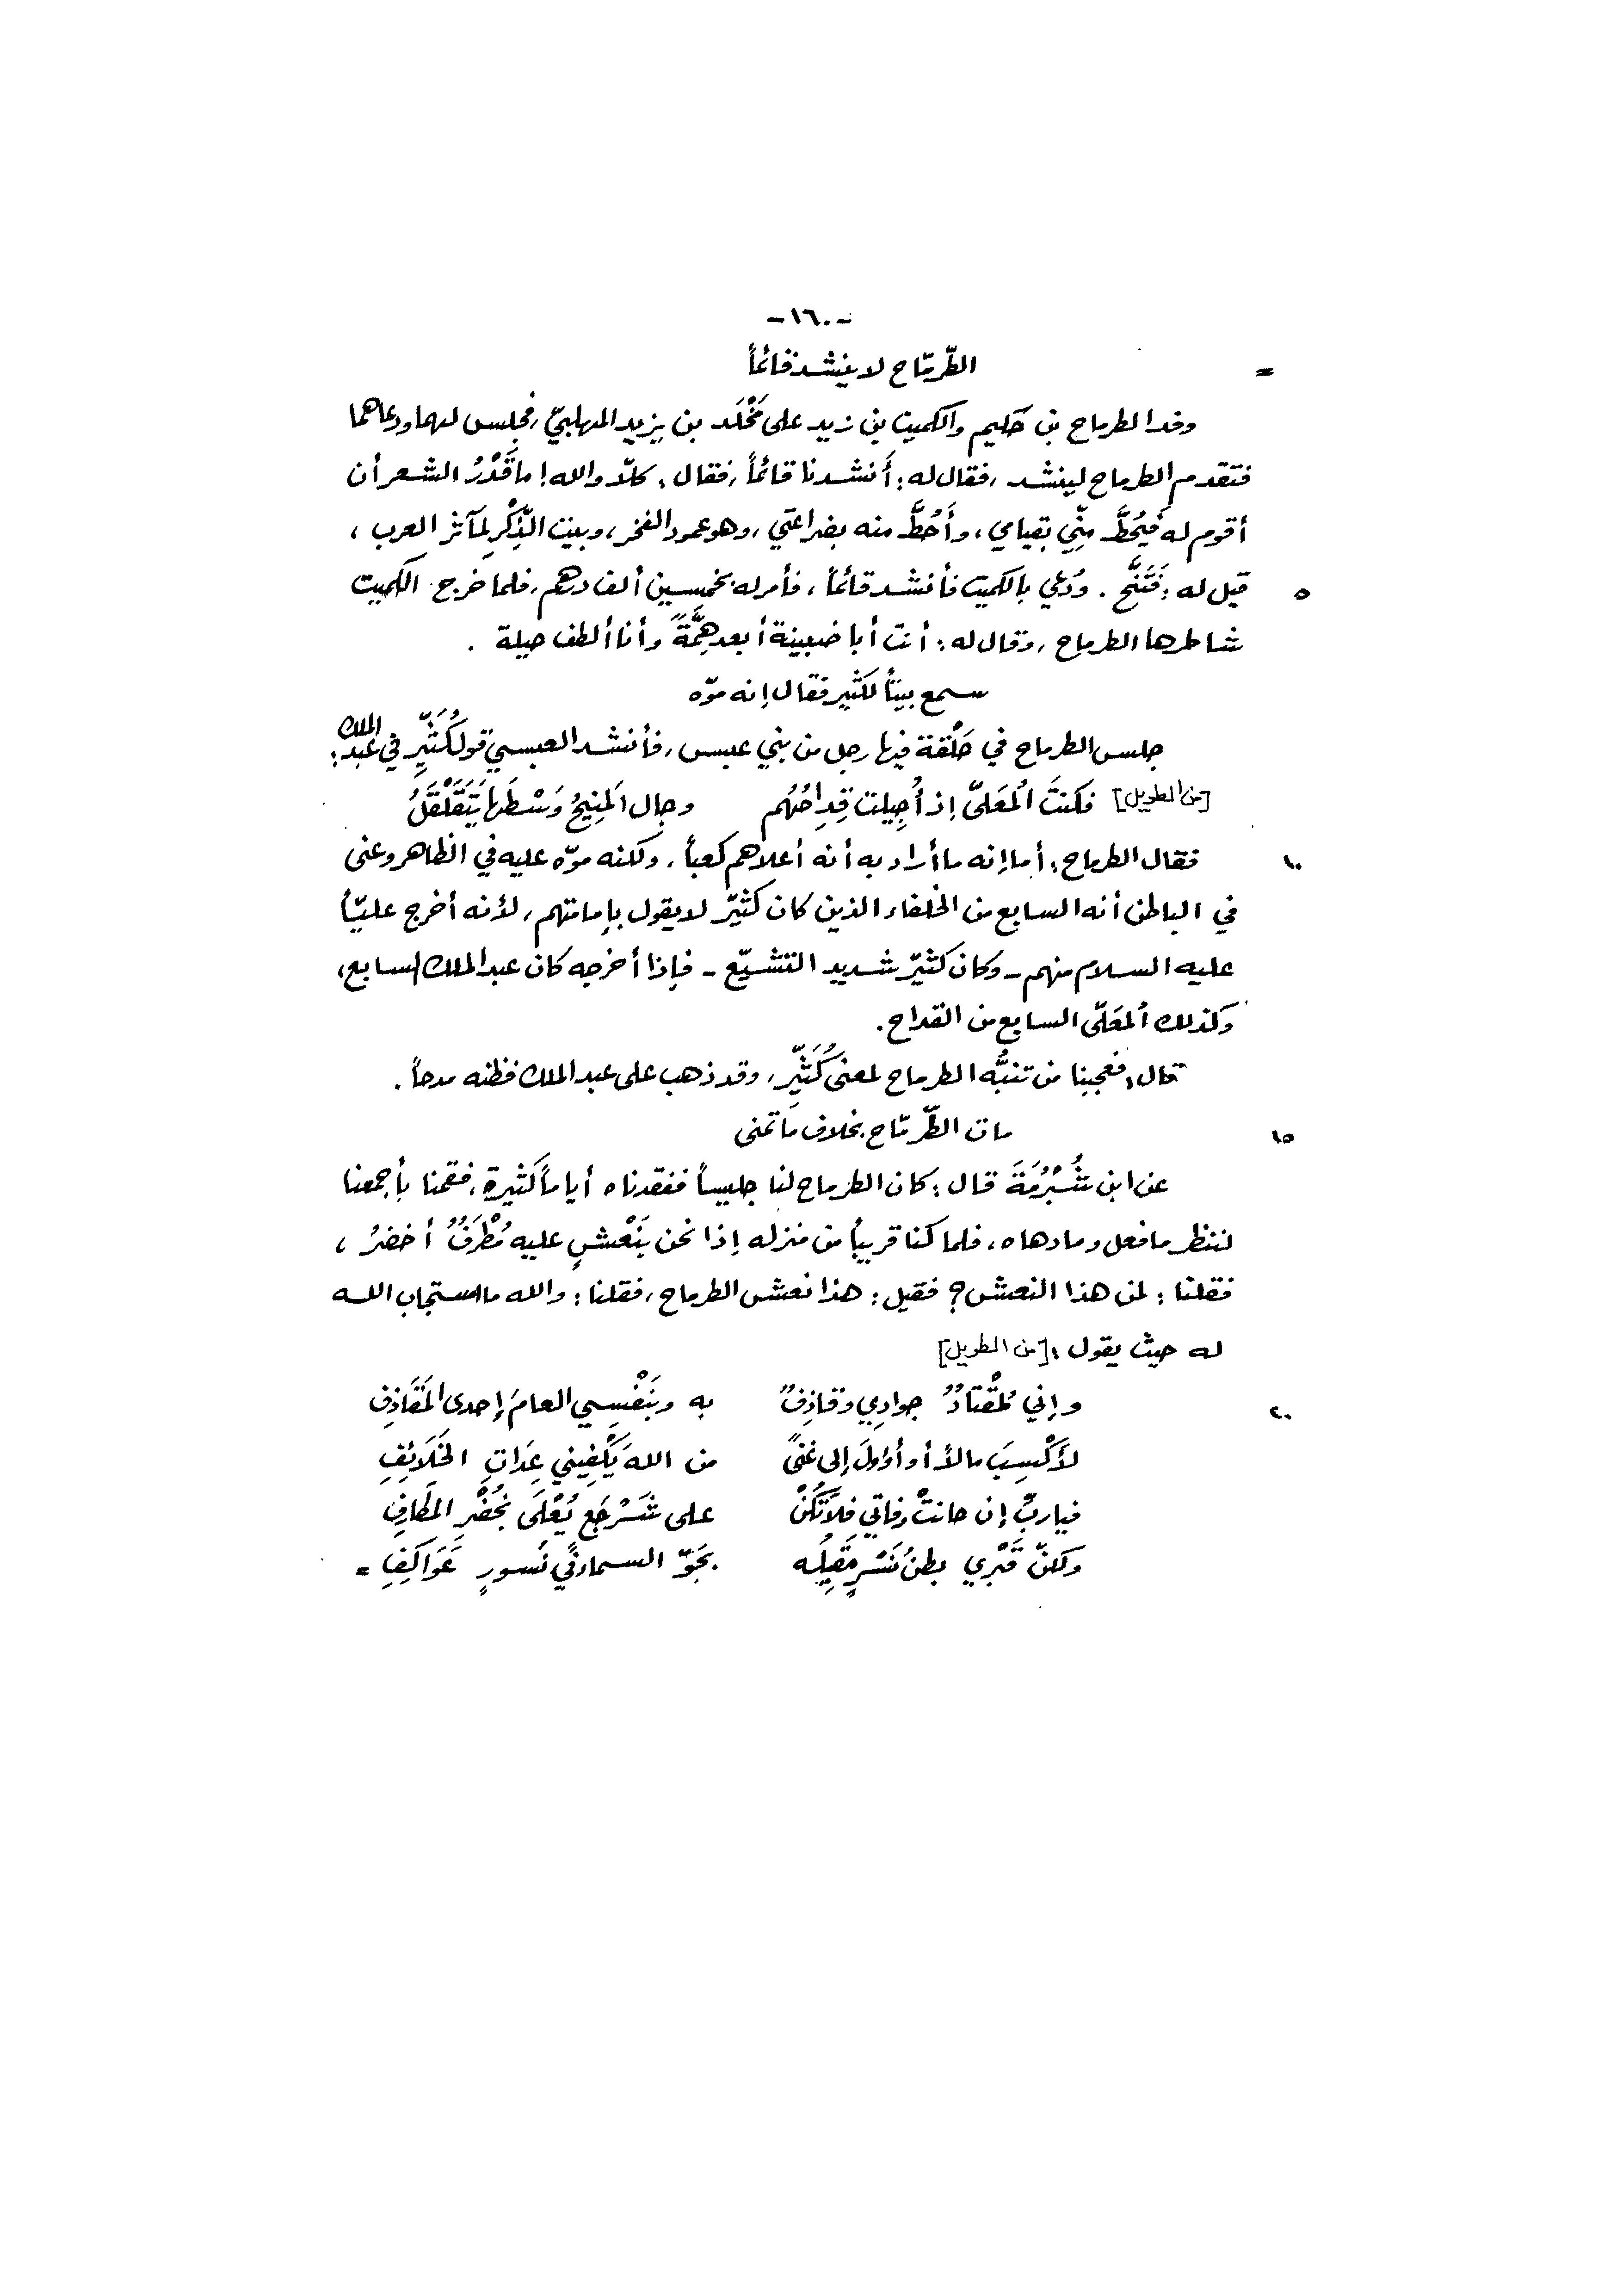 -١٦٠-
= الطّرمّاح لا ينشد قائماً
وفد الطرماح بن حكيم والكميت بن زيد على مَخْلَد بن يزيد المهلبيّ، فجلس لهما ودعاهما
فتقدم الطرماح لينشد، فقال له: أَنشدنا قائماً، فقال: كلّا والله! ما قَدْرُ الشعر أن
أقوم له فيُحَطَّ مِنّي بقيامي، وأَحُطَّ منه بضراعتي، وهو عمود الفخر، وبيت الذِّكْرِ لمآثر العرب،
٥ قيل له: فَتَنَحَّ. ودُعي بالكميت فأنشد قائماً، فأمر له بخمسين ألف درهم، فلما خرج الكميت
شاطرها الطرماح، وقال له: أنت أبا ضبينة أبعد هِمَّةً وأنا ألطف حيلة.
سمع بيتاً لكثير فقال إنه موّه
جلس الطرماح في حَلْقة فيها رجل من بني عبس، فأنشد العبسيّ قول كُثَيِّرٍ في عبد الملك:
[من الطويل] فكنتَ الُمعَلىّ إذ أُجِيلت قِدِاحُهُم وجال المَنِيحُ وَسْطَها يَتَقَلْقَلُ
١٠ فقال الطرماح: أما إنه ما أراد به أنه أعلاهم كعباً، ولكنه موّه عليه في الظاهر وعنى
في الباطن أنه السابع من الخلفاء الذين كان كثيّر لا يقول بإمامتهم، لأنه أخرج عليّاً
عليه السلام منهم - وكان كثيّر شديد التشيّع - فإذا أخرجه كان عبد الملك السابع،
وكذلك المعَلّى السابع من القداح.
قال: فعجبنا من تنبُّه الطرماح لمعنى كُثَيِّر، وقد ذهب على عبد الملك فظنه مدحاً.
١٥ مات الطّرمّاح بخلاف ما تمنى
عن ابن شُبْرُمَةَ قال: كان الطرماح لنا جليساً ففقدناه أياماً كثيرة، فقمنا بأجمعنا
لننظر ما فعل وما دهاه، فلما كنا قريباً من منزله إذا نحن بنَعْشٍ عليه مُطْرَفٌ أخضرُ،
فقلنا: لمن هذا النعش؟ فقيل: هذا نعش الطرماح، فقلنا: والله ما استجاب الله
له حيث يقول: [من الطويل]
٢٠ وإني لمُقْتادٌ جوادِي وقاذِفٌ به وبِنَفْسِي العامَ إحدى المَقَاذِفِ
لأَكْسِبَ مالاً أو أَؤولَ إلى غنىً من الله يَكْفِيني عِدَاتِ الخَلَائِفِ
فيارب إن حانتْ وفاتي فلا تَكُنْ على شَرْجَعٍ يُعْلَى بخُضْرِ المطَارِفِ
ولكنّ قَبْري بطنُ نَسْرٍ مَقِيلُه بجَوِّ السماء في نُسورٍ عَوَاكِفِ =